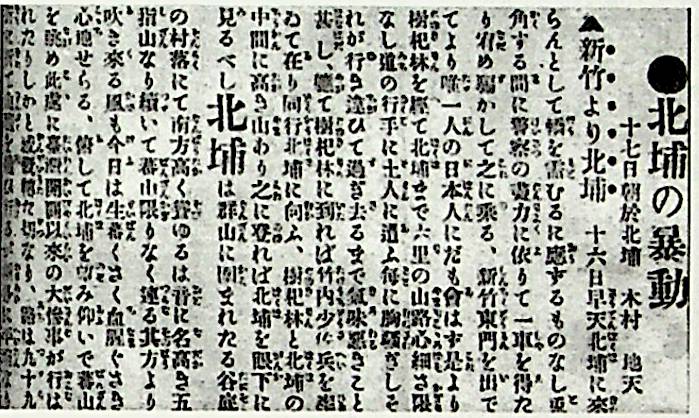 ●北埔の暴動
十七日朝於北埔 木村 地天
▲新竹より北埔 十六日早天北埔に來
らんとして轎を需むるに應するものなし
角する間に警察の盡力に依りて一車を得た
り宥め賺かして之に乘る、新竹東門を出で
てより唯一人の日本人にだも會はす是より
樹杞林を經て北埔まで六里の山路心細さ限
なし道の行手に土人に遇ふ每に胸騷ぎしそ
れが行き違ひて過ぎ去るまで氣味惡きこと
甚し、軈て樹杞林に到れば竹內少佐兵を
ゐて在り同行北埔に向ふ、樹杞林と北埔の
中間に高き山あり之に登れば北埔を眼下に
見るべし北埔は群山に圍まれたる谷底
の村落にて南方高く聳ゆるは音に名高き五
指山なり續いて蕃山限りなく連る其方より
吹き來る風も今日は生蕃くさく血腥ぐさき
心地せらる、俯して北埔を望み仰いで蕃山
を眺め此處に臺灣開闢以來の大慘事が行は
れたりしかと感慨轉た切なり、路は九十九